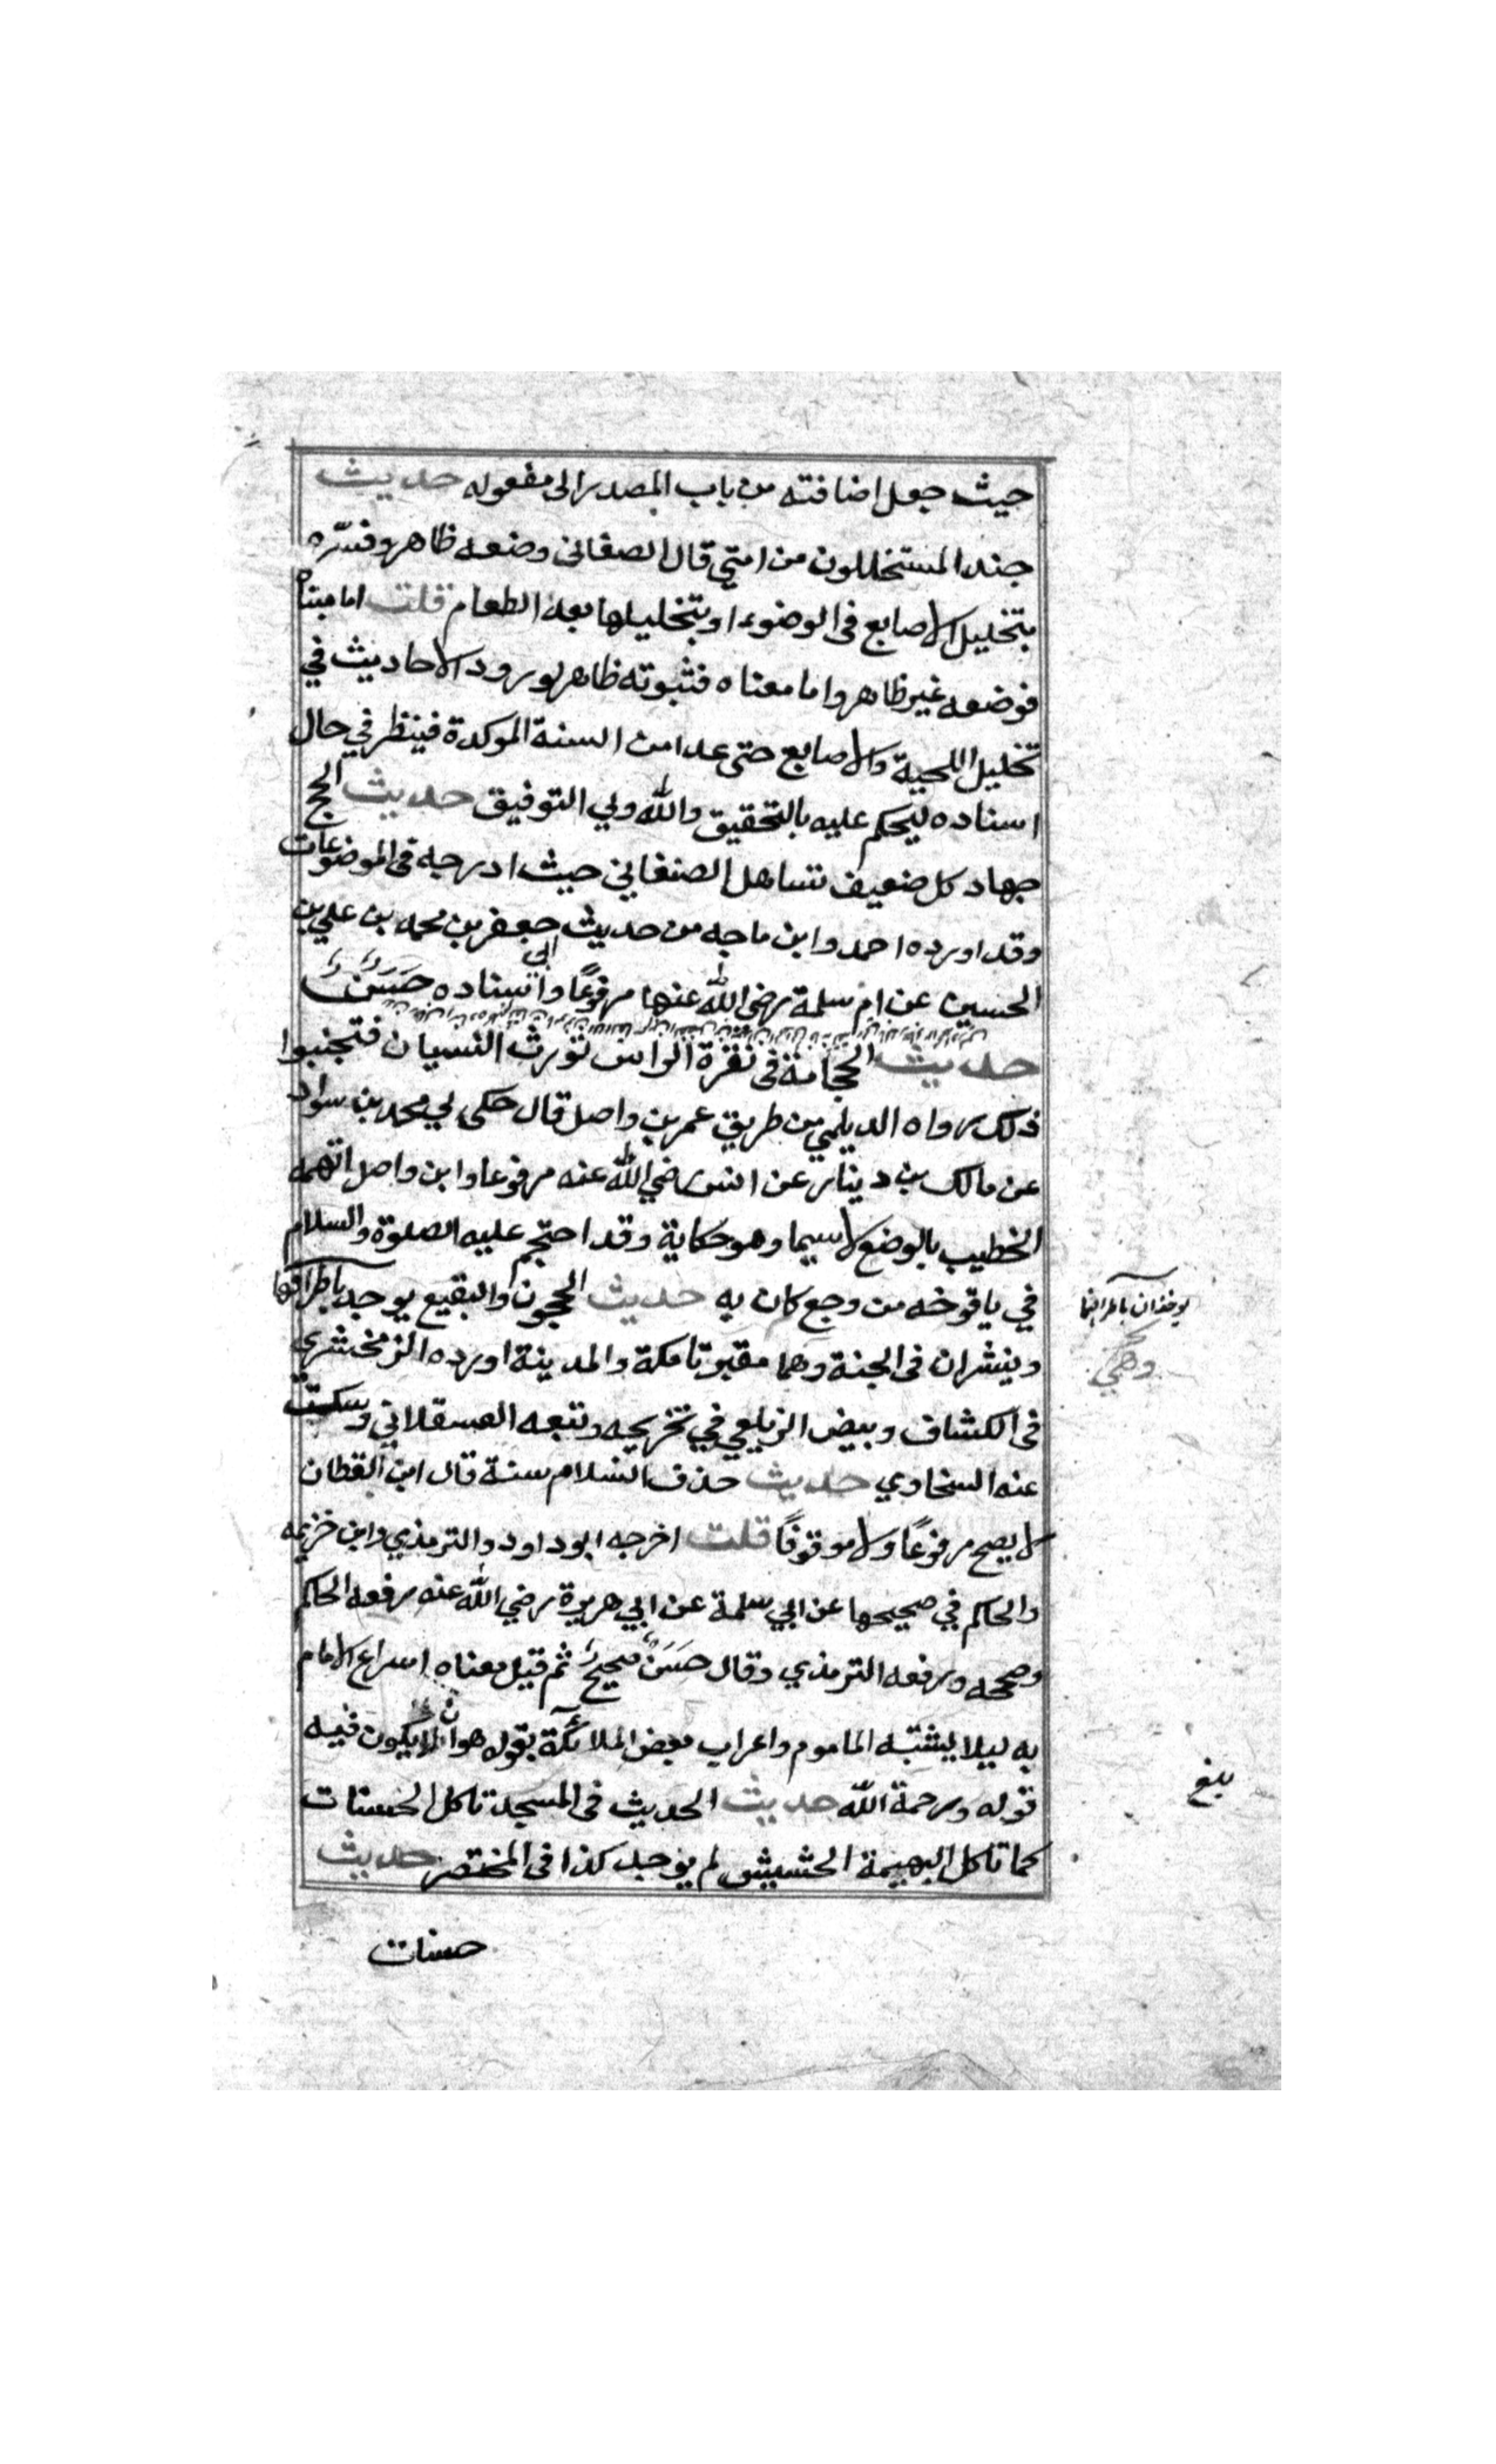 حيث جعل اضافته من باب المصدر الى مفعوله حديث
جند المستخللون من امتي قال الصغاني وضعه ظاهر وفسّره
بتخليل الاصابع فى الوضوء او بتخليلها بعد الطعام قلت اما مبناه
فوضعه غير ظاهر واما معناه فثبوته ظاهر لورود الاحاديث في
تخليل اللحية والاصابع حتى عدا من السنة الموكدة فينظر في حال
اسناده ليحكم عليه بالتحقيق والله ولي التوفيق حديث الحج
جهاد كل ضعيف تساهل الصنغاني حيث ادرجه فى الموضوعات
وقد اورده احمد وابن ماجه من حديث جعفر بن محمد بن علي بن
الحسين عن ام سلمة رضى الله عنها مرفوعًا واسناده حَسَنٌ
حديث الحجامة فى نقرة الراس تورث النسيان فتجنبوا
ذلك رواه الديلمي من طريق عمر بن واصل قال حكى لي محمد بن سواد
عن مالك بن دينار عن انس رضي الله عنه مرفوعا وابن واصل اتهمه
الخطيب بالوضع لا سيما وهو حكاية وقد احتجم عليه الصلوة والسلام
في يافوخه من وجع كان به حديث الحجون والبقيع يوجد باطرافها
وينشران فى الجنة وهما مقبرتا مكة والمدينة اورده الزمخشري
فى الكشاف وبيض الزيلعي في تخريجه وتبعه العسقلاني وسكت
عنه السخاوي حديث حذف السلام سنة قال ابن القطان
لا يصح مرفوعًا ولا موقوفًا قلت اخرجه ابو داود والترمذي وابن خزيمه
والحاكم في صحيحها عن ابي سلمة عن ابي هريرة رضي الله عنه رفعه الحاكم
وصححه ورفعه الترمذي وقال حَسَنٌ صحيحٌ ثم قيل معناه اسراع الامام
به ليلا يشتبه الماموم واعراب بعض الملائكة بقوله هو ان لا يكون فيه
قوله ورحمة الله حديث الحديث فى المسجد تاكل الحسنات
كما تاكل البهيمة الحشيش لم يوجد كذا فى المختصر حديث
حسنات
يوخذان باطرافهما
بلغ